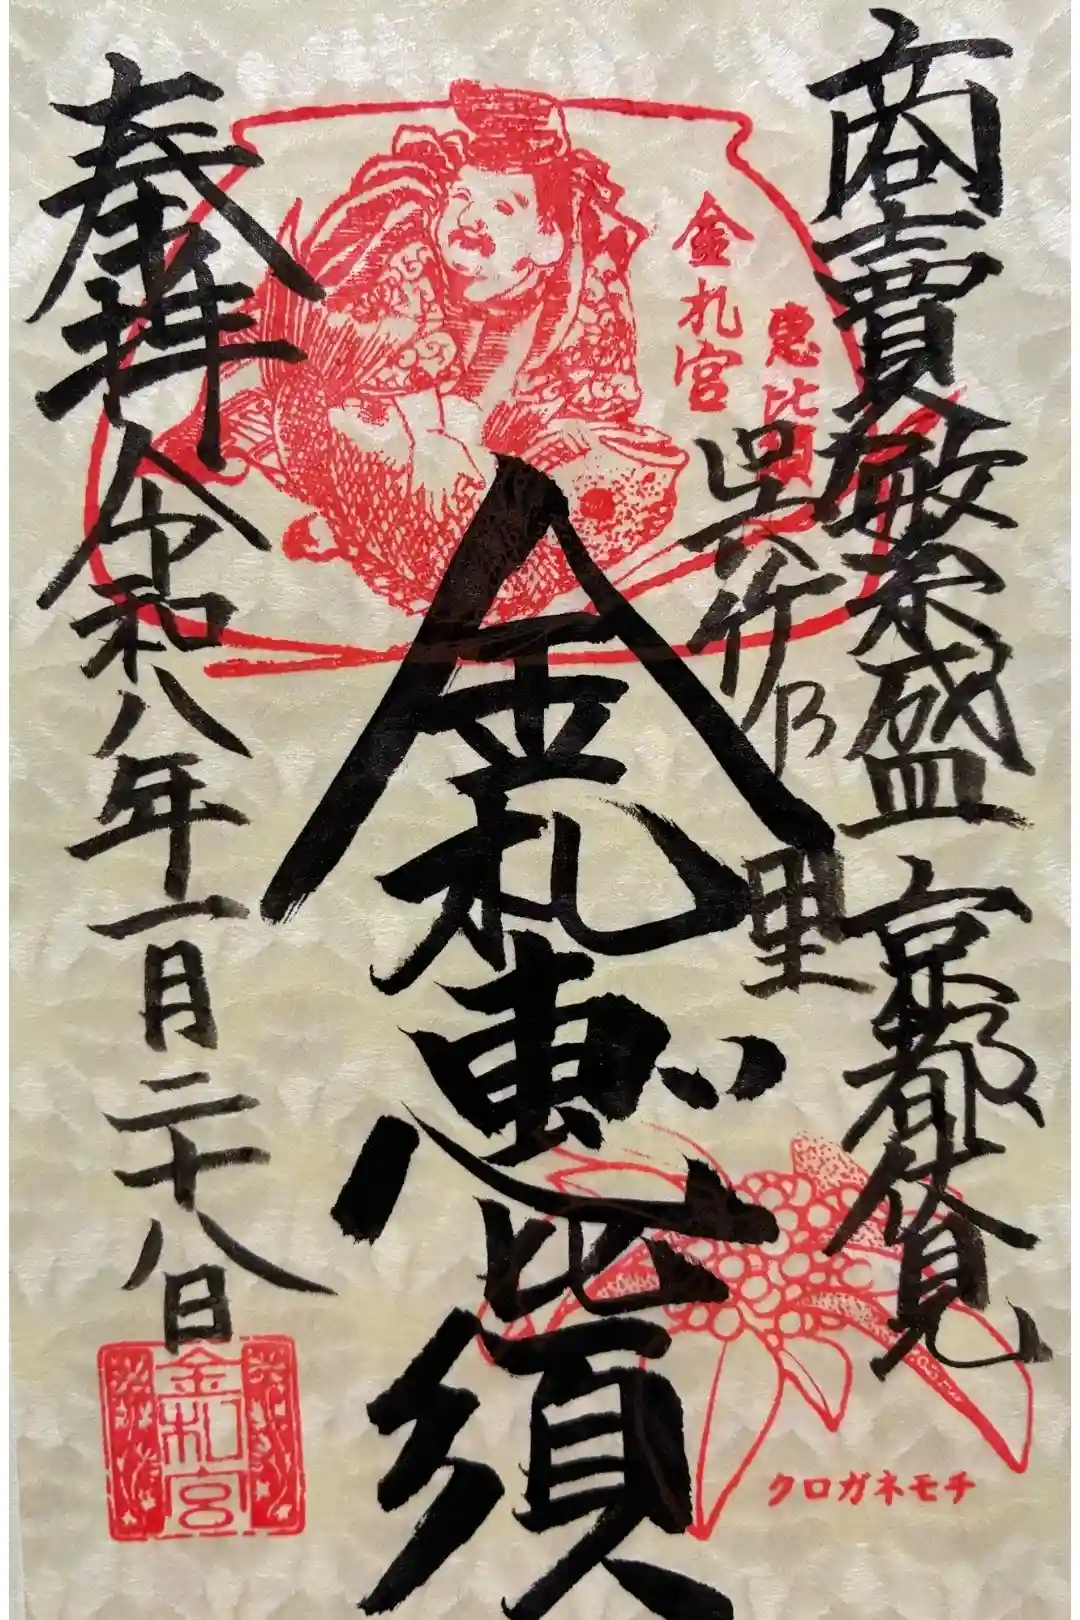 商賣繁盛 京都伏見
呉竹乃里
金札宮
惠比須
金札惠比須
奉拝 令和八年一月二十八日
金札宮
クロガネモチ